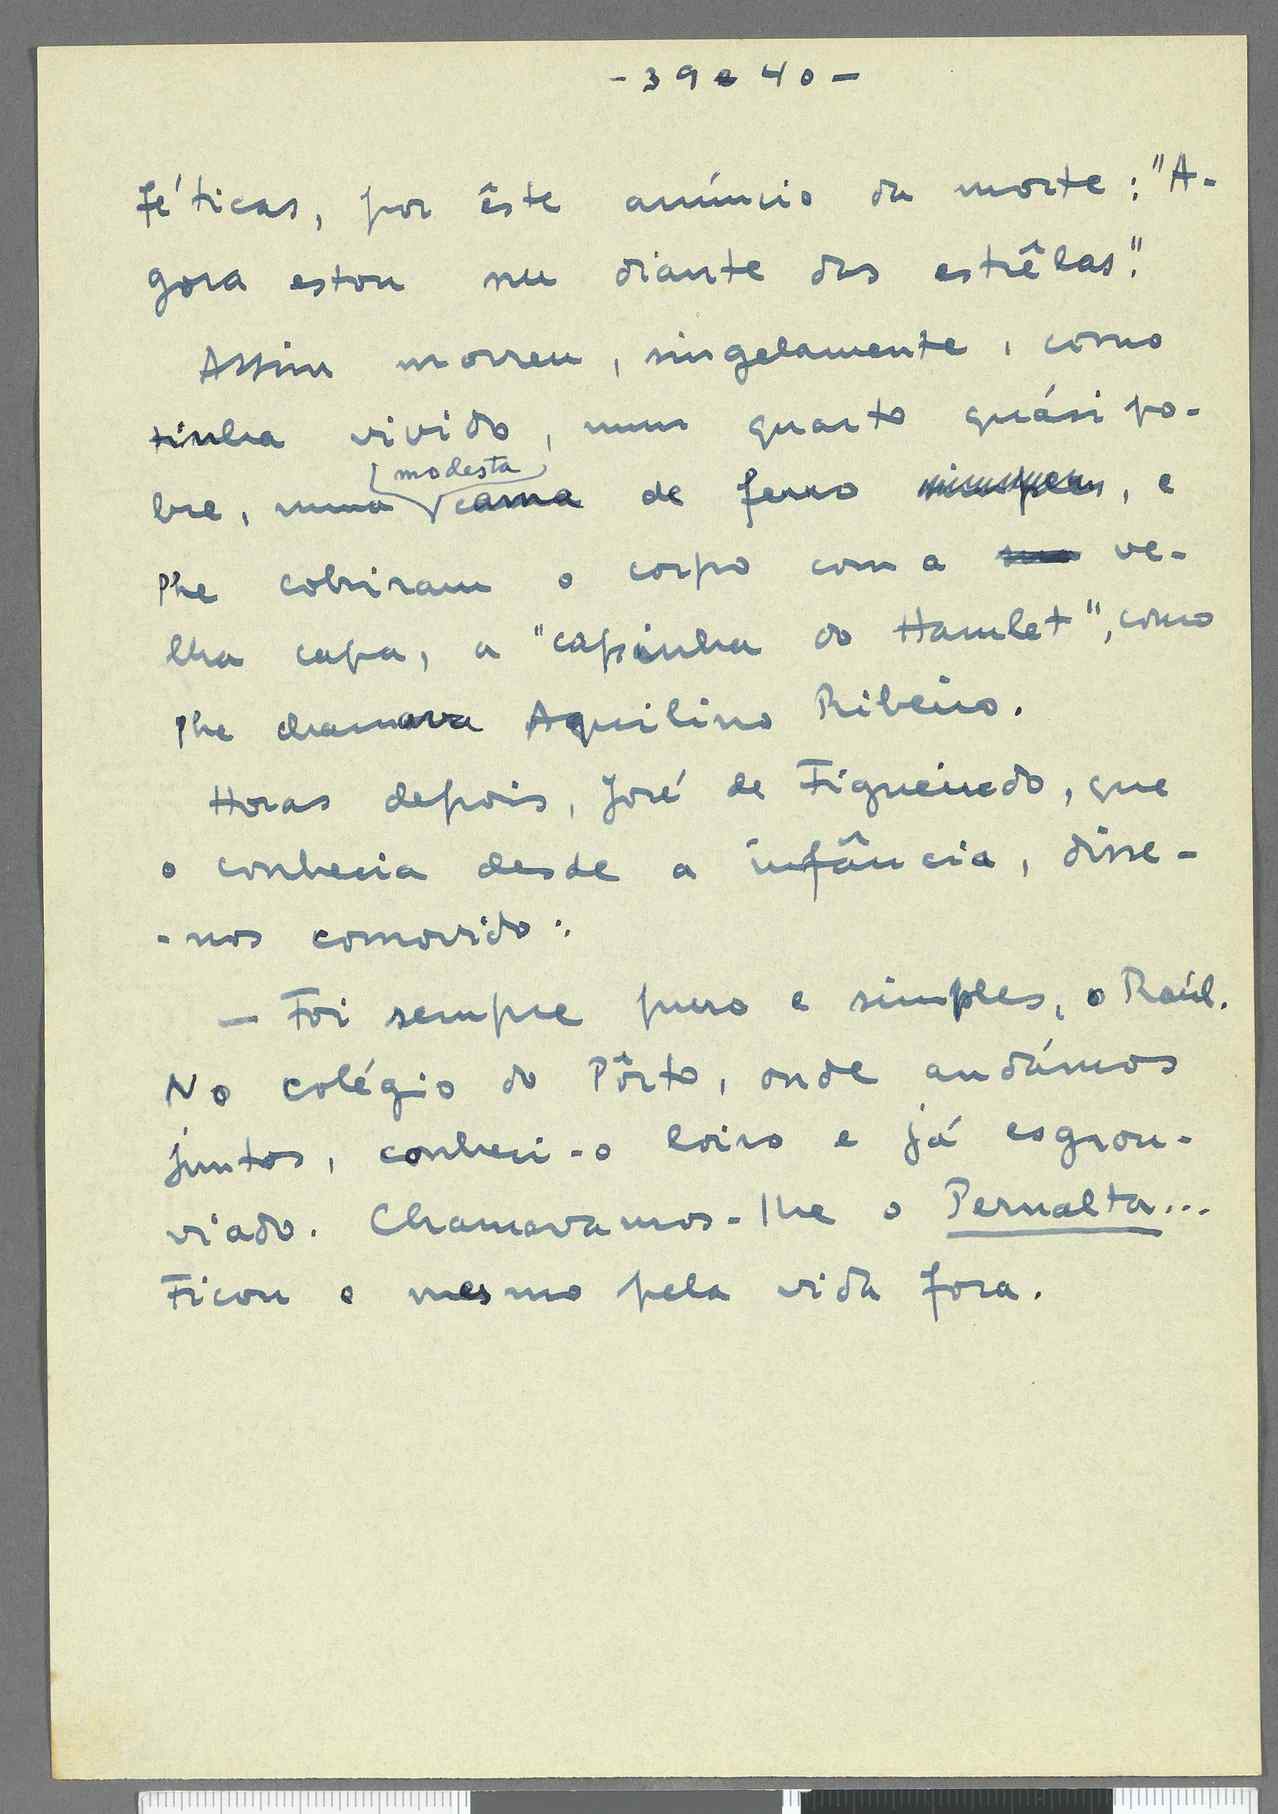 - 39 e 40 -
féticas, por êste anúncio da morte: "A-
gora estou nu diante das estrêlas".
Assim morreu, singelamente, como
tinha vivido, num quarto quási po-
modesta
bre, numa cama de ferro , e
lhe cobriram o corpo com a ve-
lha capa, a "capinha do Hamlet", como
lhe chamava Aquilino Ribeiro.
Horas depois, José de Figueiredo, que
o conhecia desde a infância, disse-
-nos comovido:
— Foi sempre puro e simples, o Raúl.
No colégio do Pôrto, onde andámos
juntos, conheci-o loiro e já esgrou-
viado. Chamavamos-lhe o Pernalta...
Ficou o mesmo pela vida fora.